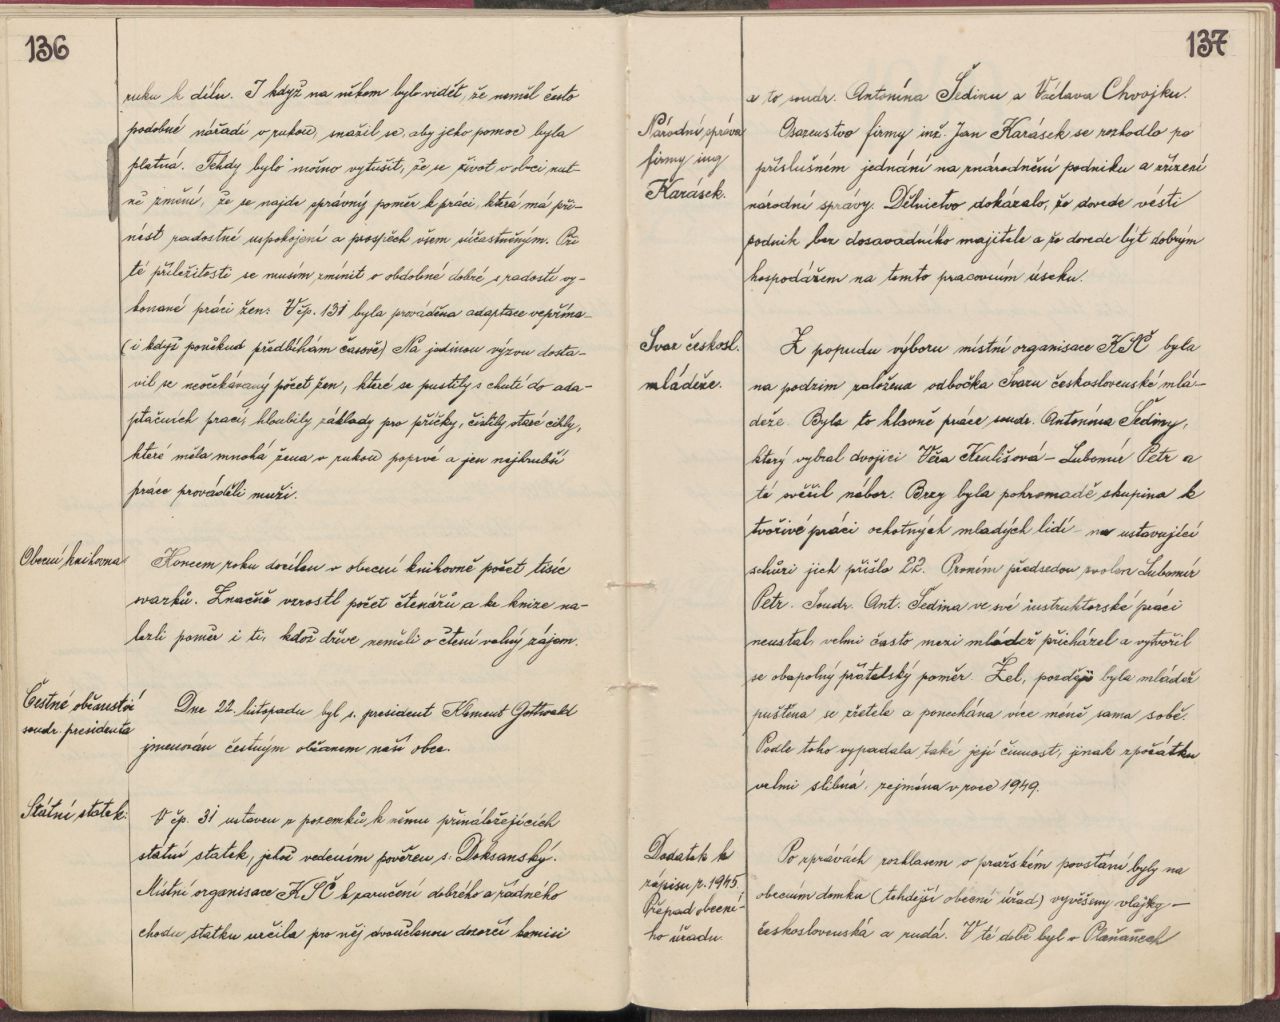 136
ruku k dílu. I když na někom bylo vidět, že neměl často
podobné nářadí v rukou, snažil se, aby jeho pomoc byla
platná. Tehdy bylo možno vytušit, že se život v obci nut-
ně změní, že se najde správný poměr k práci, která má při-
nést radostné uspokojení a prospěch všem súčastněným. Při
té příležitosti se musím zmínit o obdobné dobré s radostí vy-
konané práci žen: V čp. 131 byla prováděna adaptace vepřína-
(i když poněkud předbíhám časově) Na jedinou výzvu dosta-
vil se neočekávaný počet žen, které se pustily s chutí do ada-
ptačních prací, hloubily základy pro příčky, čistily staré cihly,
které měla mnohá žena v rukou poprvé a jen nejhrubší
práce prováděli muži.
Obecní knihovna:
Koncem roku docílen v obecní knihovně počet tisíc
svazků. Značně vzrostl počet čtenářů a ke knize na-
lezli poměr i ti, kdož dříve neměli o čtení valný zájem.
Čestné občanství
soudr. presidenta
Dne 22. listopadu byl s. president Klement Gottwald
jmenován čestným občanem naší obce.
Státní statek:
V čp. 31 ustaven z pozemků k němu přináležejících
státní statek, jehož vedením pověřen s. Doksanský.
Místní organisace KSČ k zaručení dobrého a řádného
chodu statku určila pro něj dvoučlenou dozorčí komisi
137
a to soudr. Antonína Šedinu a Václava Chvojku.
Národní správa
firmy ing
Karásek.
Osazenstvo firmy inž. Jan Karásek se rozhodlo po
příslušném jednání na znárodnění podniku a zřízení
národní správy. Dělnictvo dokázalo, že dovede vésti
podnik bez dosavadního majitele a že dovede být dobrým
hospodářem na tomto pracovním úseku.
Svaz českosl.
mládeže.
Z popudu výboru místní organisace KSČ byla
na podzim založena odbočka Svazu československé mlá-
deže. Byla to hlavně práce soudr. Antonína Šediny,
který vybral dvojici Věra Krulišová - Lubomír Petr a
té svěřil nábor. Brzy byla pohromadě skupina k
tvořivé práci ochotných mladých lidí - na ustavující
schůzi jich přišlo 22. Prvním předsedou zvolen Lubomír
Petr. Soudr. Ant. Šedina ve své instruktorské práci
neustal, velmi často mezi mládež přicházel a vytvořil
se obapolný přátelský poměr. Žel, později byla mládež
puštěna se zřetele a ponechána více méně sama sobě.
Podle toho vypadala také její činnost, jinak zpočátku
velmi slibná, zejména v roce 1949.
Dodatek k
zápisu r. 1945.
Přepad obecní-
ho úřadu.
Po zprávách rozhlasem o pražském povstání byly na
obecním domku (tehdejší obecní úřad) vyvěšeny vlajky -
československá a rudá. V té době byl v Plaňanech